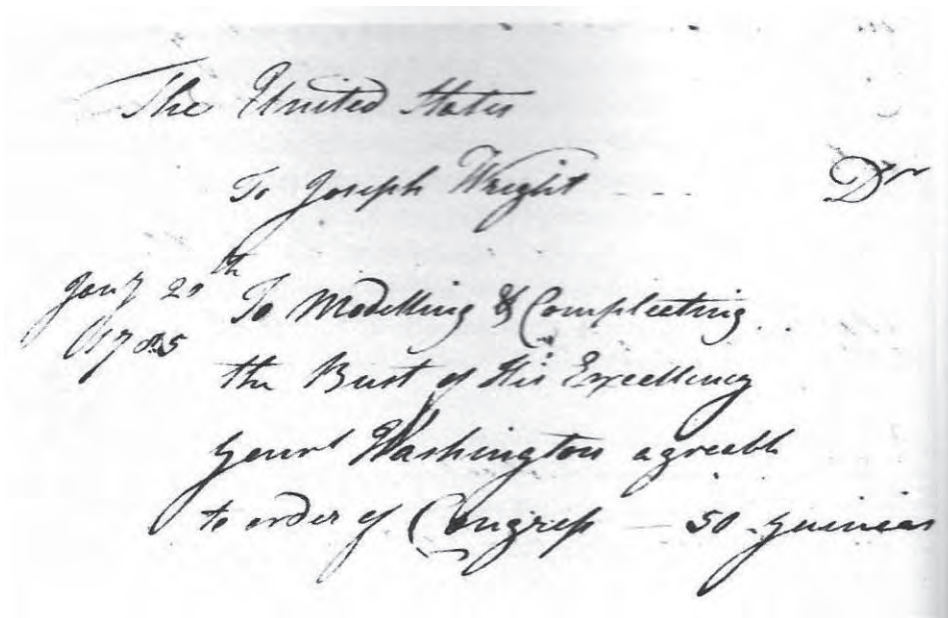 The United States
To Joseph Wright Dr
Jany 20th To Modelling & Compleeting
1785 the Bust of His Excellency
Genrl Washington agreeable
to order of Congress — 50 guineas